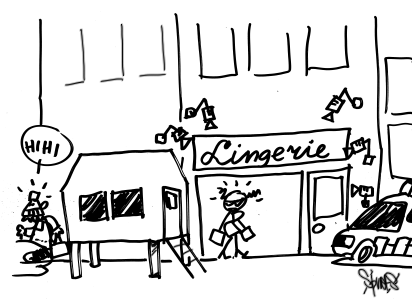 HIHI
Lingerie